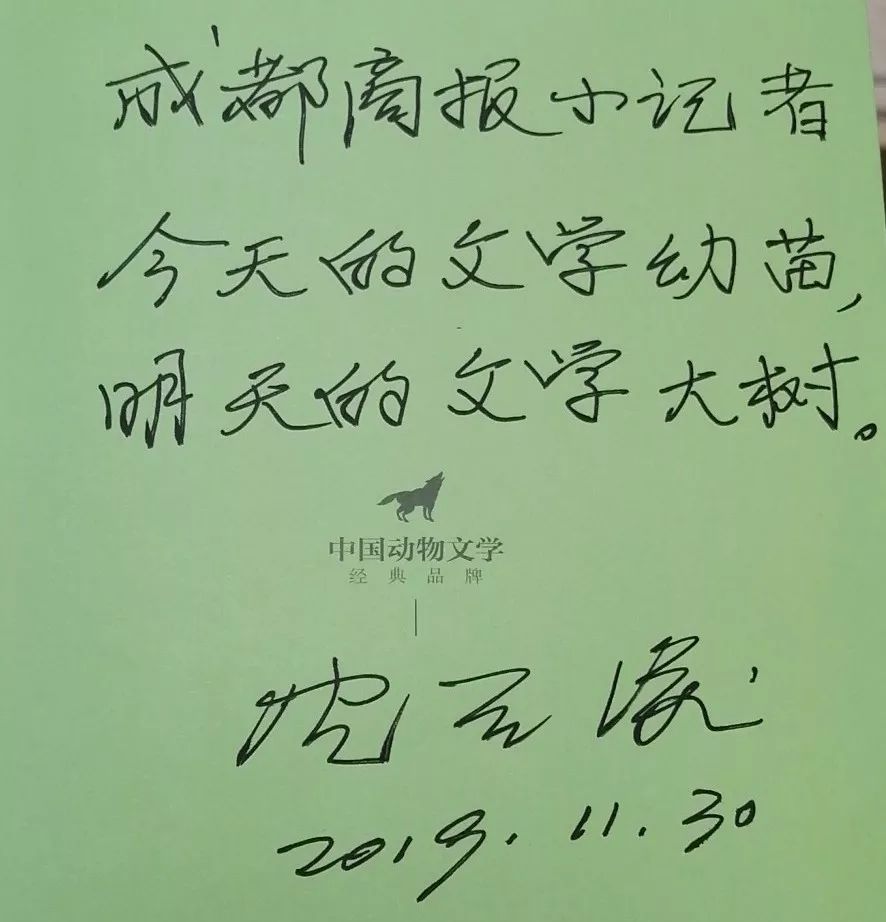 成都商报小记者
今天的文学幼苗,
明天的文学大树。
中国动物文学
经典品牌
沈石溪
2019.11.30